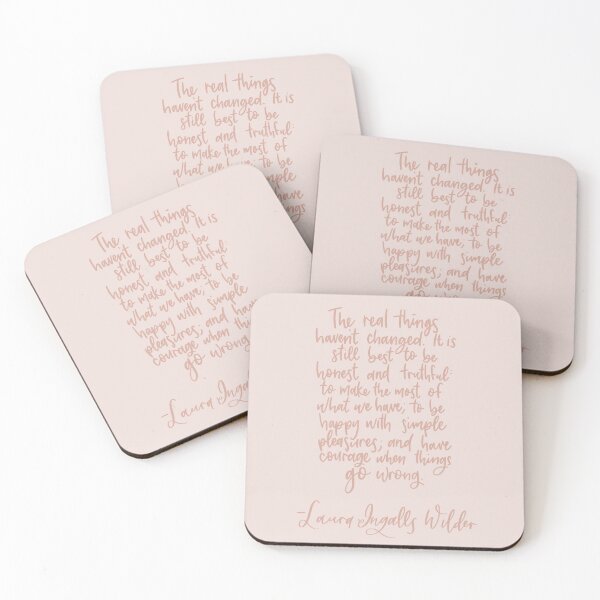 The real things
havent changed. It is
still best to be
honest and truthful:
to make the most of
what we have; to be
simple
have
things
The real things
havent changed. It is
still best to be
honest and truthful:
to make the most of
what we have; to be
happy with simple
pleasures; and have
courage when things
go wrong
The real things
havent changed. It is
still best to be
honest and truthful:
to make the most of
what we have; to be
happy with simple
pleasures; and have
courage when things
go wrong.
-Laura
The real things
havent changed. It is
still best to be
honest and truthful:
to make the most of
what we have; to be
happy with simple
pleasures; and have
courage when things
go wrong.
-Laura Ingalls Wilder